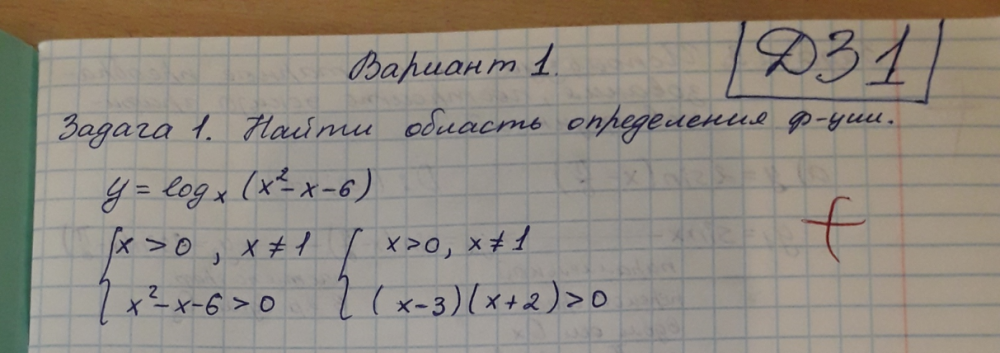 Вариант 1.
ДЗ 1
Задача 1. Найти область определения ф-ции.
y = logₓ (x² - x - 6)
{ x > 0 , x ≠ 1 { x > 0, x ≠ 1
x² - x - 6 > 0 (x - 3)(x + 2) > 0
+